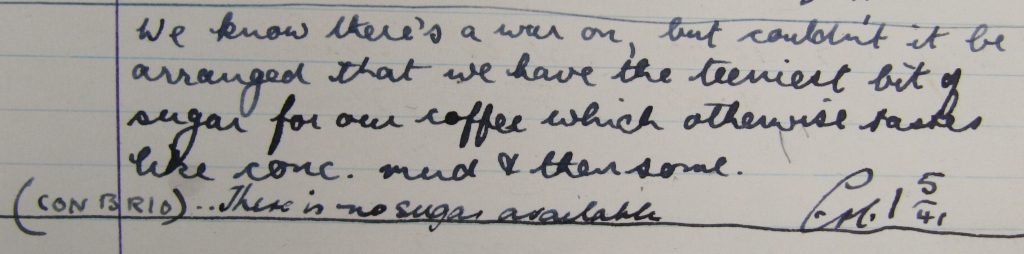 We know there's a war on, but couldn't it be
arranged that we have the teeniest bit of
sugar for our coffee which otherwise tastes
like conc. mud & then some.
(CON BRIO)...There is no sugar available
1 5/41